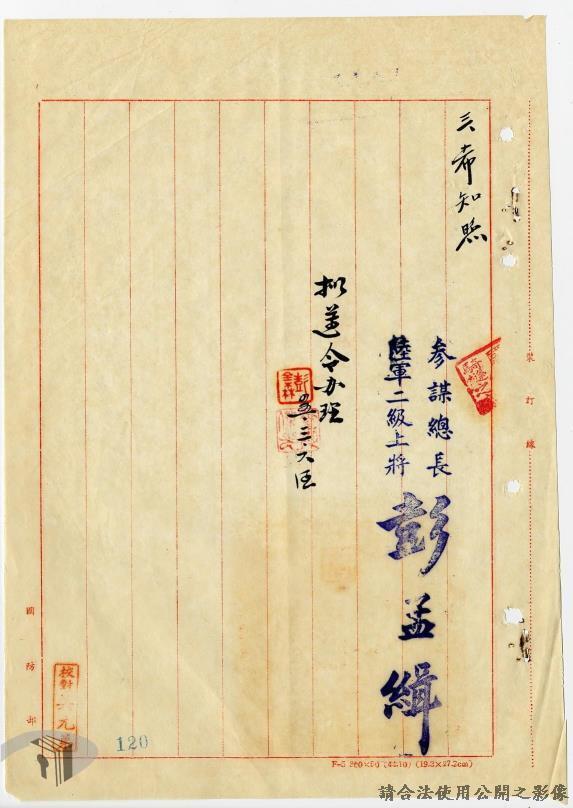 三、希知照
參謀總長
陸軍二級上將
彭孟緝
擬遵令办理
裝訂線
國防部
校對
120
F-5 260×90 (44.10) (19.3×27.2cm)
請合法使用公開之影像